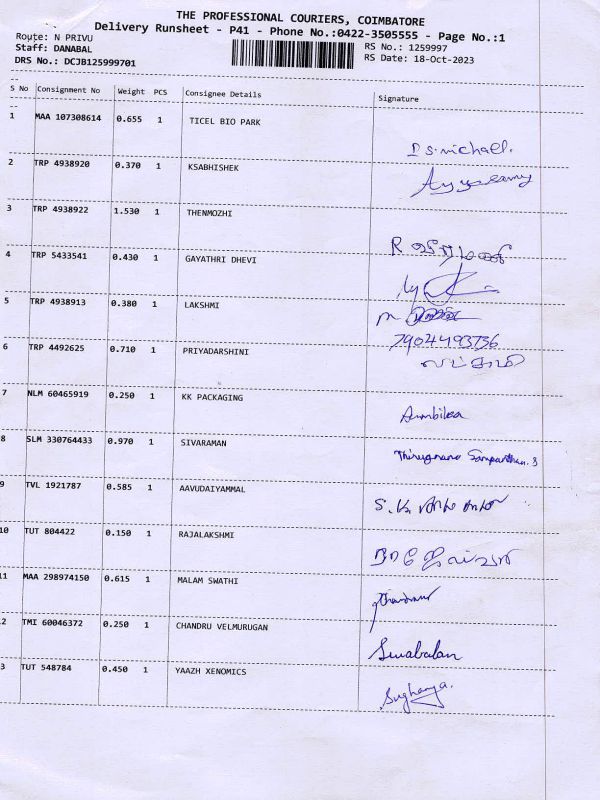 THE PROFESSIONAL COURIERS, COIMBATORE
Delivery Runsheet - P41 - Phone No.:0422-3505555 - Page No.:1
Route: N PRIVU
RS No.: 1259997
Staff: DANABAL
RS Date: 18-Oct-2023
DRS No.: DCJB125999701
S No Consignment No Weight PCS Consignee Details Signature
1 MAA 107308614 0.655 1 TICEL BIO PARK
2 TRP 4938920 0.370 1 KSABHISHEK
3 TRP 4938922 1.530 1 THENMOZHI
4 TRP 5433541 0.430 1 GAYATHRI DHEVI
5 TRP 4938913 0.380 1 LAKSHMI
7904493736
6 TRP 4492625 0.710 1 PRIYADARSHINI
7 NLM 60465919 0.250 1 KK PACKAGING
8 SLM 330764433 0.970 1 SIVARAMAN
9 TVL 1921787 0.585 1 AAVUDAIYAMMAL
10 TUT 804422 0.150 1 RAJALAKSHMI
11 MAA 298974150 0.615 1 MALAM SWATHI
2 TMI 60046372 0.250 1 CHANDRU VELMURUGAN
3 TUT 548784 0.450 1 YAAZH XENOMICS
Sughanya.